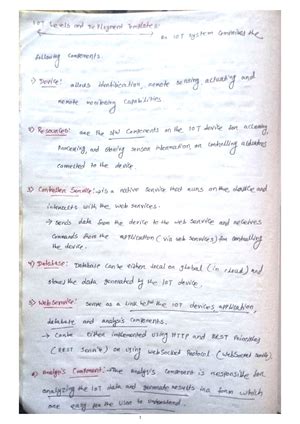 IOT Levels and Deployment Templates:
An IOT System Comprises the
following Components.
1) Device: allows identification, remote sensing actuating and
remote monitoring capabilities
2) Resources: are the s/w Components on the IOT device for accessing
Processing, and storing sensor information, or controlling actuators
connected to the device.
3) Controller Service: is a native service that runs on the device and
interacts with the web services.
→ sends data from the device to the web service and receives
Commands from the application (via web services) for controlling
the device.
4) Database: Database Can be either local or global (in cloud) and
stores the data generated by the IOT device.
5) Web Service: serve as a link b/w the IOT device, application,
database and analysis Components.
→ Can be either implemented using HTTP and REST Principles
(REST Service) or using WebSocket Protocol (WebSocket Service)
6) Analysis Component: The analysis Component is responsible for
analyzing the IOT data and generate results in a form which
are easy for the User to understand.
1